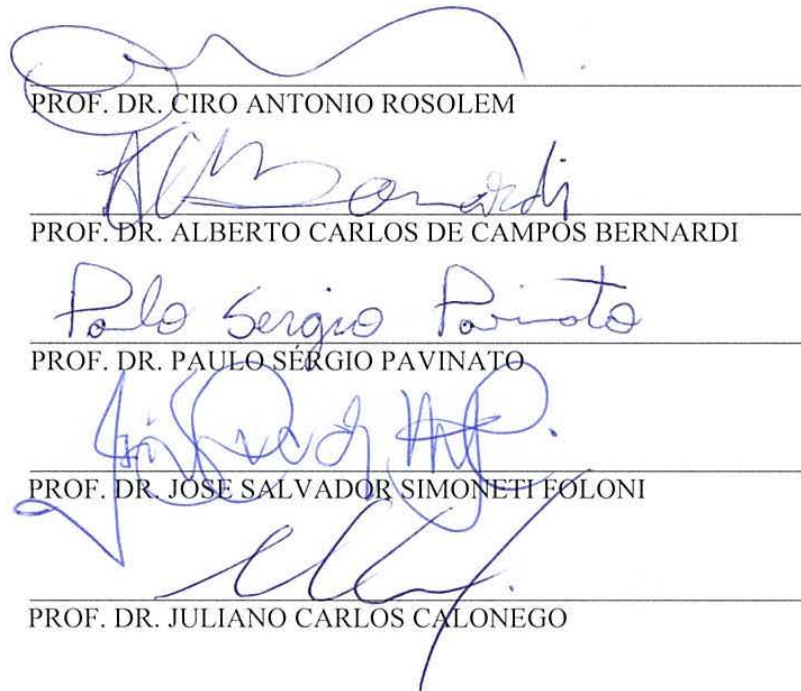 PROF. DR. CIRO ANTONIO ROSOLEM
Bernardi
PROF. DR. ALBERTO CARLOS DE CAMPOS BERNARDI
Paulo Sergio Pavinato
PROF. DR. PAULO SÉRGIO PAVINATO
PROF. DR. JOSE SALVADOR SIMONETI FOLONI
PROF. DR. JULIANO CARLOS CALONEGO